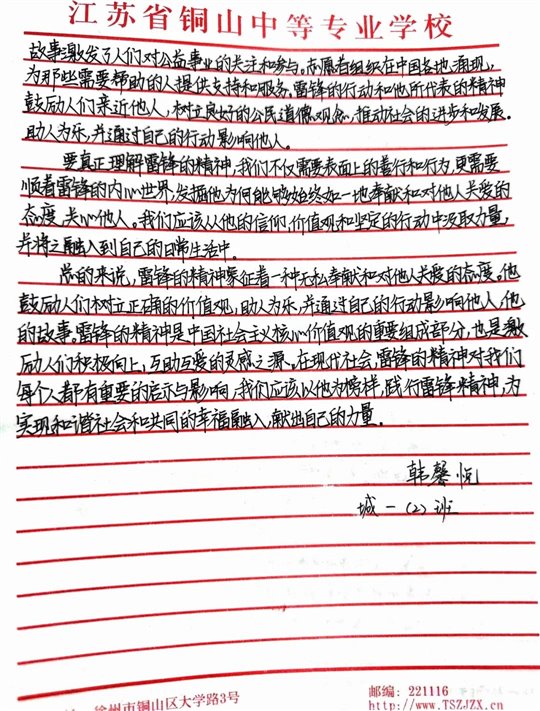 江苏省铜山中等专业学校
故事激发了人们对公益事业的关注和参与。志愿者组织在中国各地涌现，
为那些需要帮助的人提供支持和服务。雷锋的行动和他所代表的精神
鼓励人们亲近他人，树立良好的公民道德观念，推动社会的进步和发展。
助人为乐，并通过自己的行动影响他人。
要真正理解雷锋的精神，我们不仅需要表面上的善行和行为，更需要
顺着雷锋的内心世界，发掘他为何能够始终如一地奉献和对他人关爱的
态度、关心他人。我们应该从他的信仰、价值观和坚定的行动中汲取力量，
并将之融入到自己的日常生活中。
总的来说，雷锋的精神象征着一种无私奉献和对他人关爱的态度。他
鼓励人们树立正确的价值观，助人为乐，并通过自己的行动影响他人，他
的故事。雷锋的精神是中国社会主义核心价值观的重要组成部分，也是激
励人们积极向上，互助互爱的灵感之源。在现代社会，雷锋的精神对我们
每个人都有重要的启示与影响，我们应该以他为榜样，践行雷锋精神，为
实现和谐社会和共同的幸福融入，献出自己的力量。
韩馨悦
城一（2）班
徐州市铜山区大学路3号
邮编：221116
http://www.TSZJZX.cn